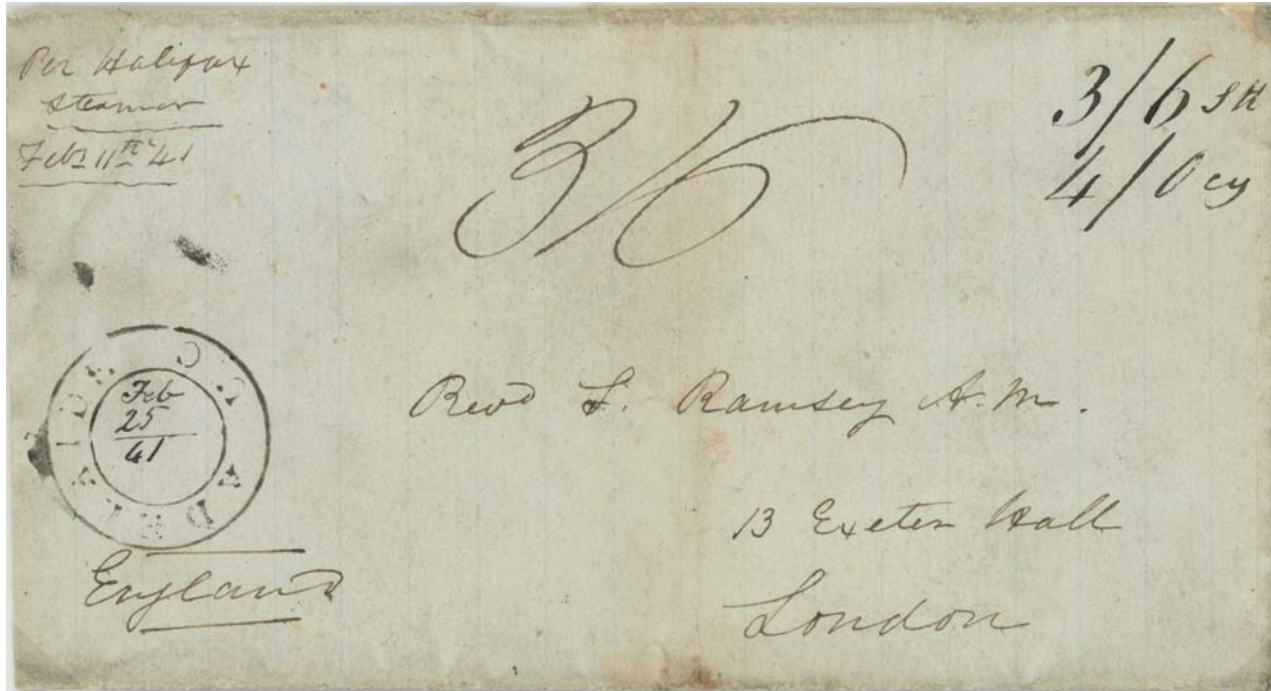 Per Halifax
Steamer
Feby 11th 41
3/6
3/6 st
4/0 cy
ADELAIDE
Feb
25
41
Revd Ramsey A.M.
13 Exeter Hall
London
England